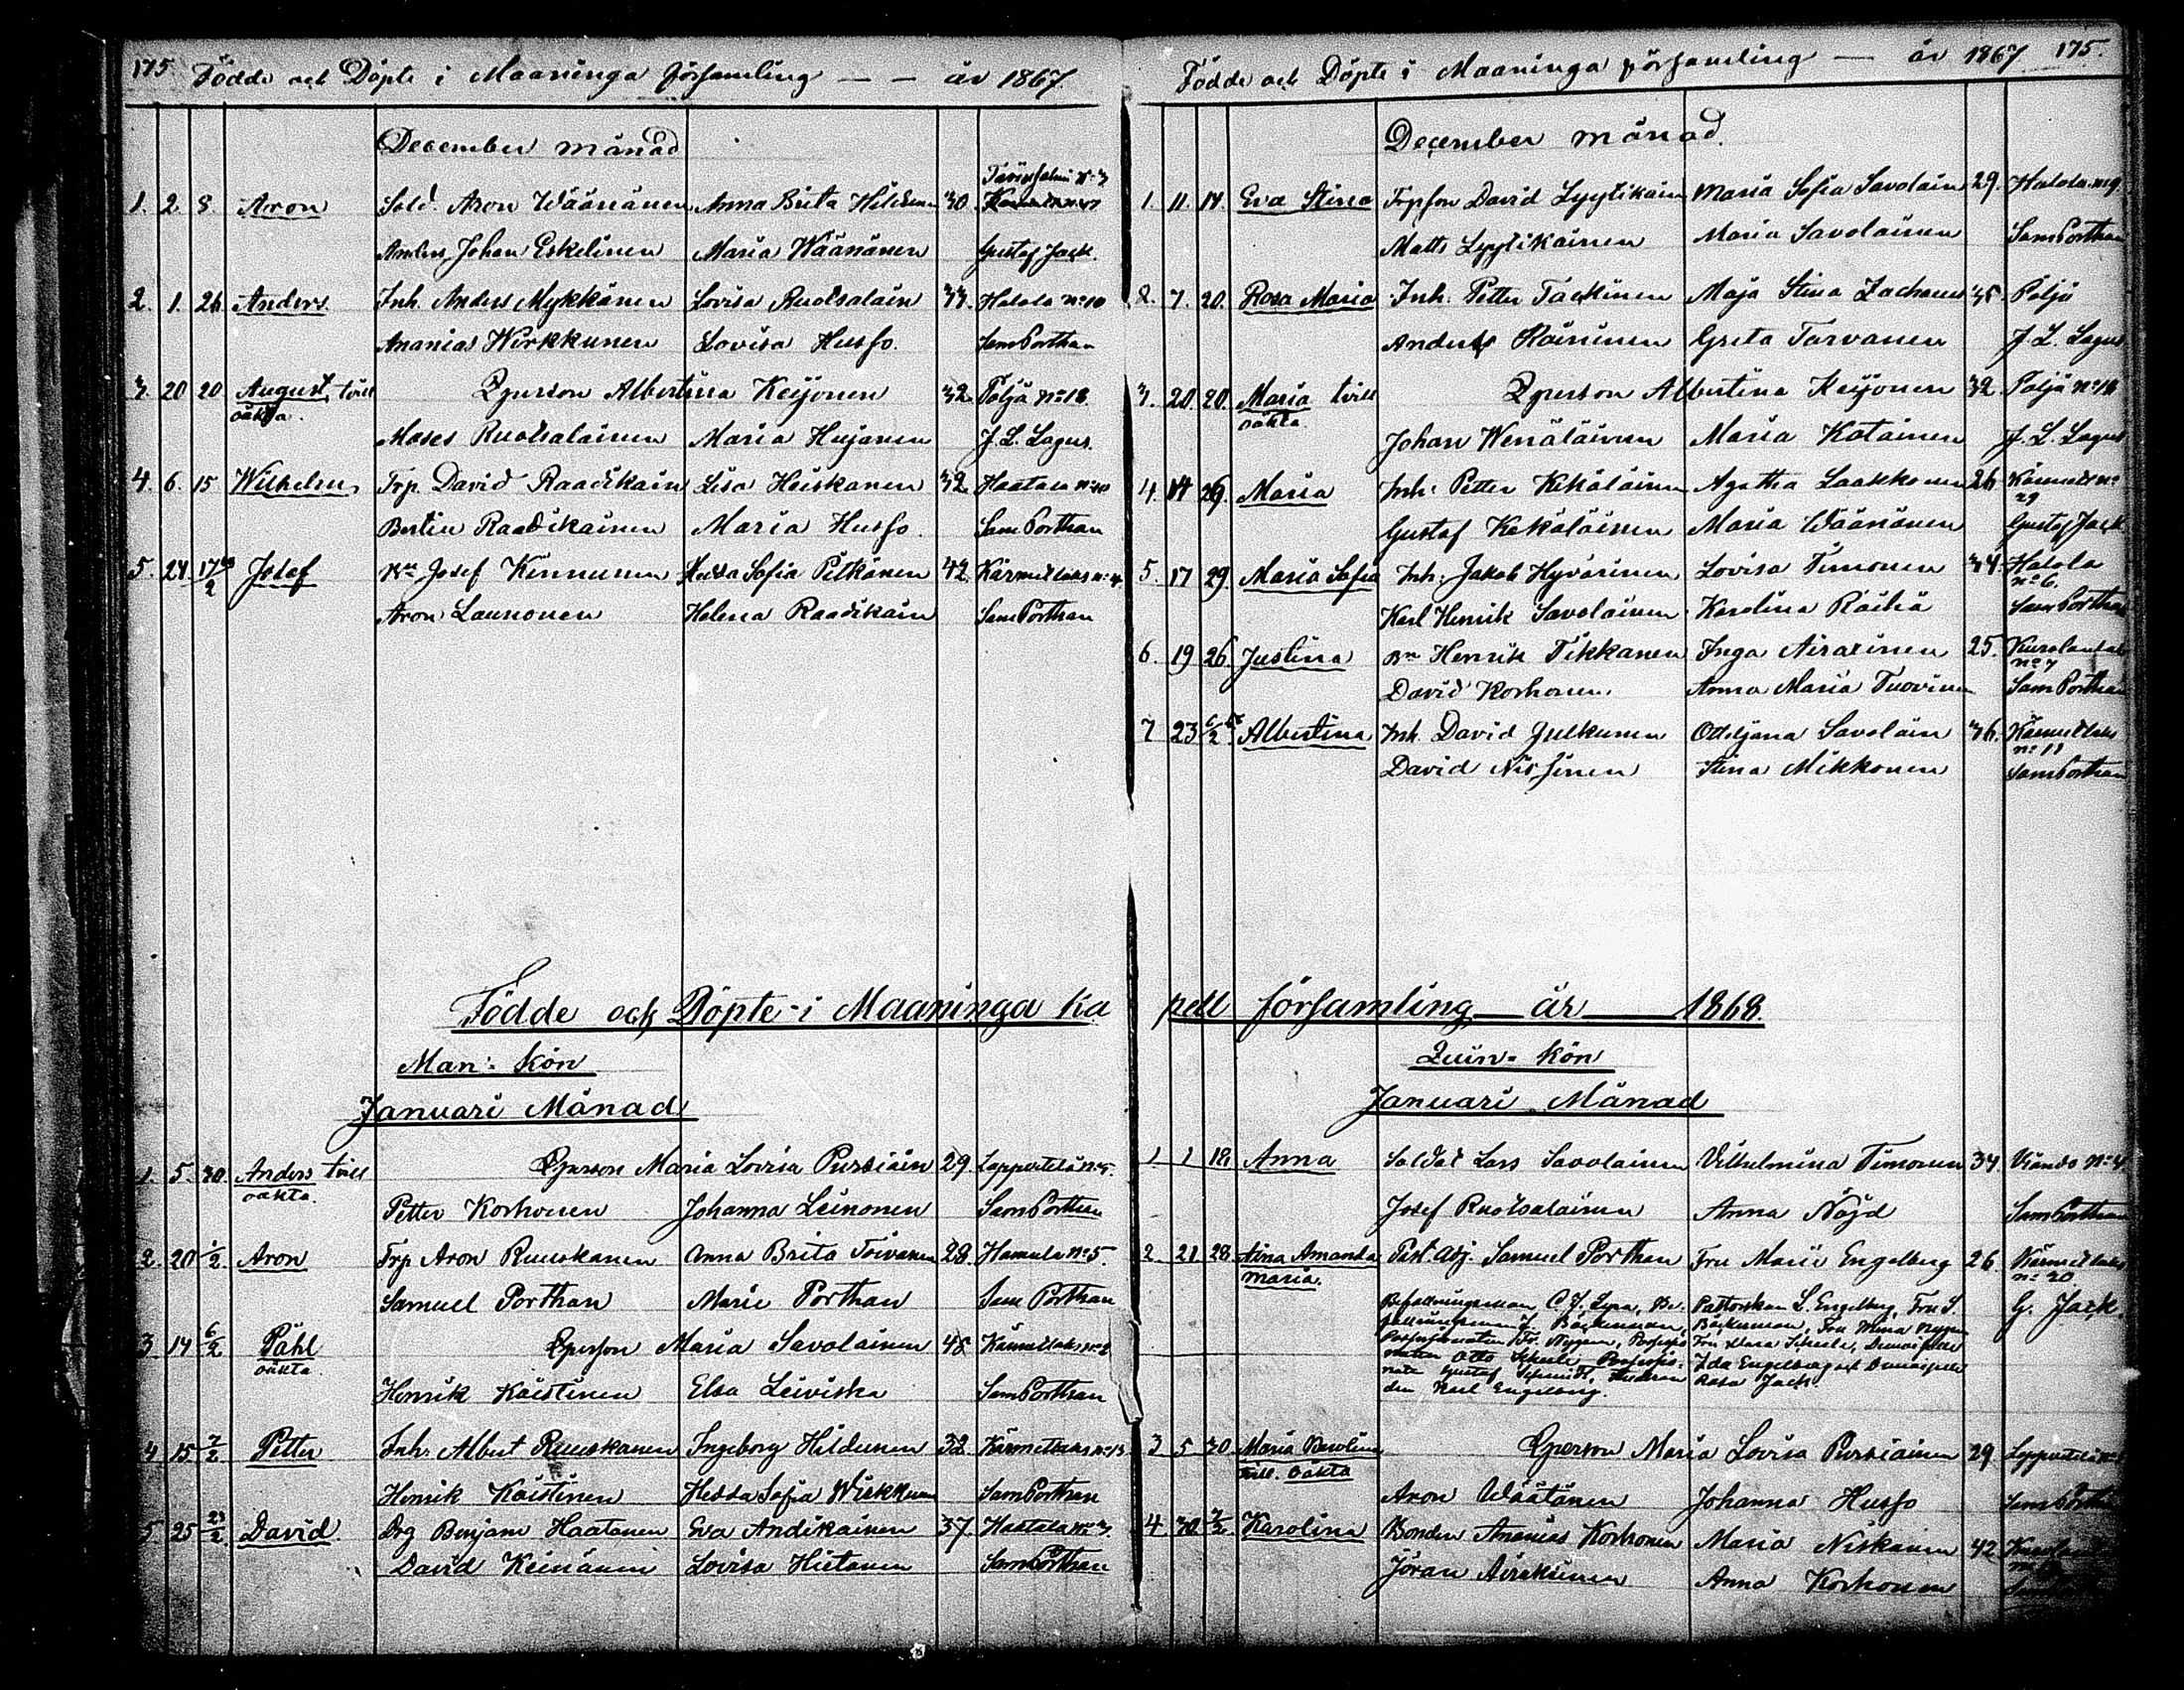 175 Födde och Döpte i Maaninga församling — — år 1867.
December månad
1. 2. 8. Aron Sold. Aron Wäänänen Anna Brita 30
Anders Johan Eskelinen Maria Wäänänen Gustaf Jack.
2. 1. 26 Anders. Inh. Anders Mykkänen Lovisa Ruotsalain Halola No 10
Ananias Wirkkunen Lovisa Husso. Sam Porthan
3. 20 20 August, tvill Qperson Albertina Keijonen 32 Pöljä No 18.
oäkta.
Moses Ruotsalainen Maria Hujanen J. L. Lagus.
4. 6. 15 Wilhelm Trp. David Raadikain Lisa Heiskanen 32 Haatala No 10
Bertin Raadikainen Maria Husso. Sam Porthan
5. 24 Josef Bn Josef Kinnunen Hedda Sofia Pitkänen 42 Kärmetlaks No 4
Aron Launonen Helena Raadikain Sam Porthan
Födde och Döpte i Maaninga ka
Man: kön
Januari Månad
1. 5. 30. Anders tvill Qperson Maria Lovisa Pursiäin 29. Lappetelä No 5.
oäkta.
Petter Korhonen Johanna Leinonen Sam Porthan
2. 20 1/2. Aron Trp Aron Ruuskanen Anna Brita Toivanen 28. Hamula No 5.
Samuel Porthan Marie Porthan Sam Porthan
3 14 6/2 Påhl Qperson Maria Savolainen 48 Kärmetlaks
oäkta.
Henrik Kaistinen Elsa Leiviska Sam Porthan
4 15 7/2 Petter Inh. Albert Ruuskanen Ingeborg Hildunen 32. Kärmetlaks No 13
Henrik Kaistinen Hedda Sofia Wirkkunen Sam Porthan
5. 25 23/2. David Drg Benjam Haatanen Eva Andikainen 37. Haatala No 3.
David Keinänen Lovisa Hietanen Sam Porthan
Födde och Döpte i Maaninga församling — år 1867 175.
December månad.
1. 11. 14. Eva Stina Trpson David Lyytikäin Maria Sofia Savolain 29. Halola No 9.
Matts Lyytikäinen Maria Savolainen Sam Porthan
2. 7. 20. Rosa Maria Inh. Petter Tackinen Maja Stina 35 Pöljä
Anders Räisinen Greta Tarvanen J. L. Lagus
3. 20. 20. Maria tvill Qperson Albertina Keijonen 32 Pöljä No 18
oäkta.
Johan Wenäläinen Maria Katainen J. L. Lagus
4. 14 26. Maria Inh. Petter Kekäläinen Agatha Laakkonen 26 Kärmetl No
29
Gustaf Kekäläinen Maria Wäänänen Gustaf Jack
5. 17 29. Maria Sofia Inh. Jakob Hyvärinen Lovisa Timonen 34. Halola
No 6.
Karl Henrik Savolainen Karolina Räihä Sam Porthan
6. 19 26. Justina Bn Henrik Tikkanen Inga Airaxinen 25.
No 7
David Korhonen. Anna Maria Tuovinen Sam Porthan
7 23 Albertina Inh. David Julkunen Ottiljana Savolain 36. Kärmetlaks
No 13
David Nissinen Stina Mikkonen Sam Porthan
pell församling — år — 1868.
Quin= kön
Januari Månad
1 1 18 Anna Soldat Lars Savolainen Vilhelmina Timonen 34 Viando No 4
Josef Ruotsalainen Anna Nöjd Sam Porthan
2. 21. 28. Aina Amanda Past. Adj. Samuel Porthan Fru Marie Engelberg 26. Kärmetlaks
Maria. No 20
Befallningsman C. J. Lyra, Be- Pastorskan L. Engelberg, Fru S. G. Jack.
fallningsman J. Bäckerman, Bäckerman, Fru Mina Nygren
Otto Ida Engelberg och
nate Gustaf Schmidt, Studeran Rosa Jack.
den Karl Engelberg.
3 5 30. Maria Qperson Maria Lovisa Pursiainen 29
tvill. oäkta
Aron Wäätänen Johanna Husso Sam Porthan
4 30. Karolina Bonden Ananias Korhonen Maria Niskanen 42
Jöran Airaksinen Anna Korhonen